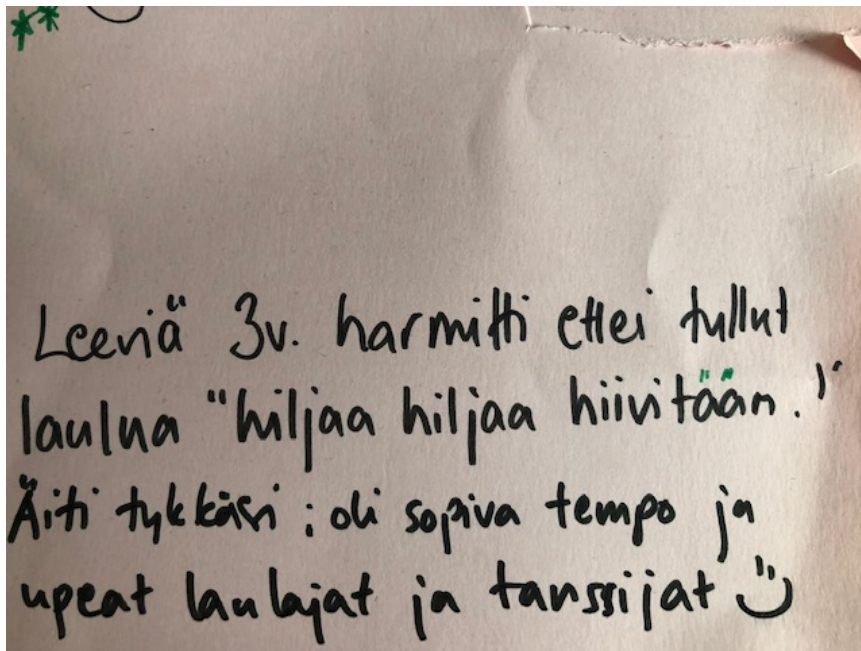 Leeviä 3v. harmitti ettei tullut
laulua "hiljaa hiljaa hiivitään."
Äiti tykkäsi : oli sopiva tempo ja
upeat laulajat ja tanssijat :)